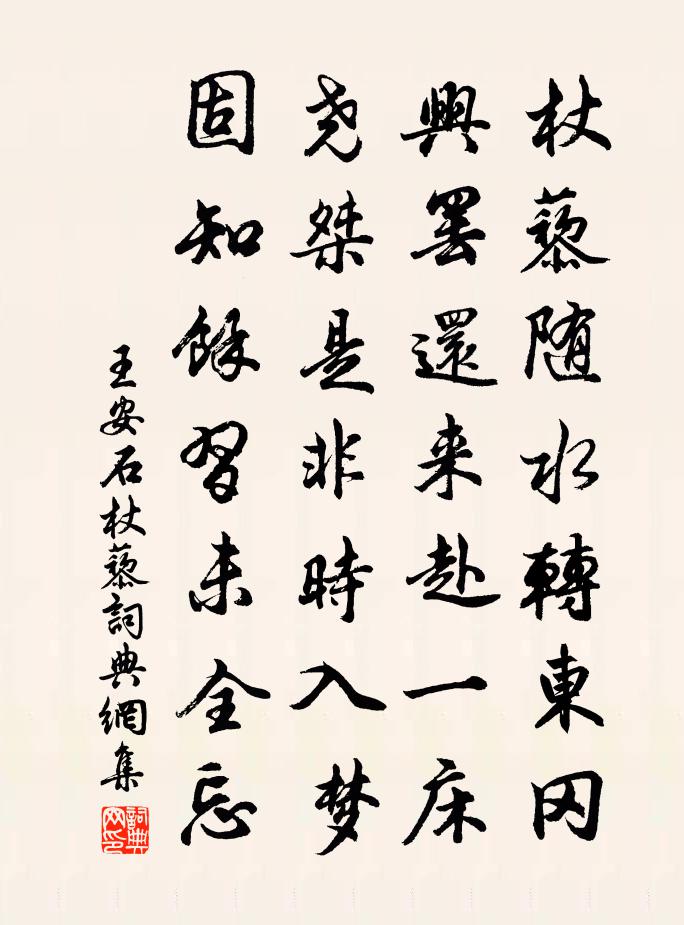 杖藜随水轉東冈
興罢還来赴一床
尧桀是非時入梦
固知餘習未全忘
王安石杖藜詞典網集
詞典网印